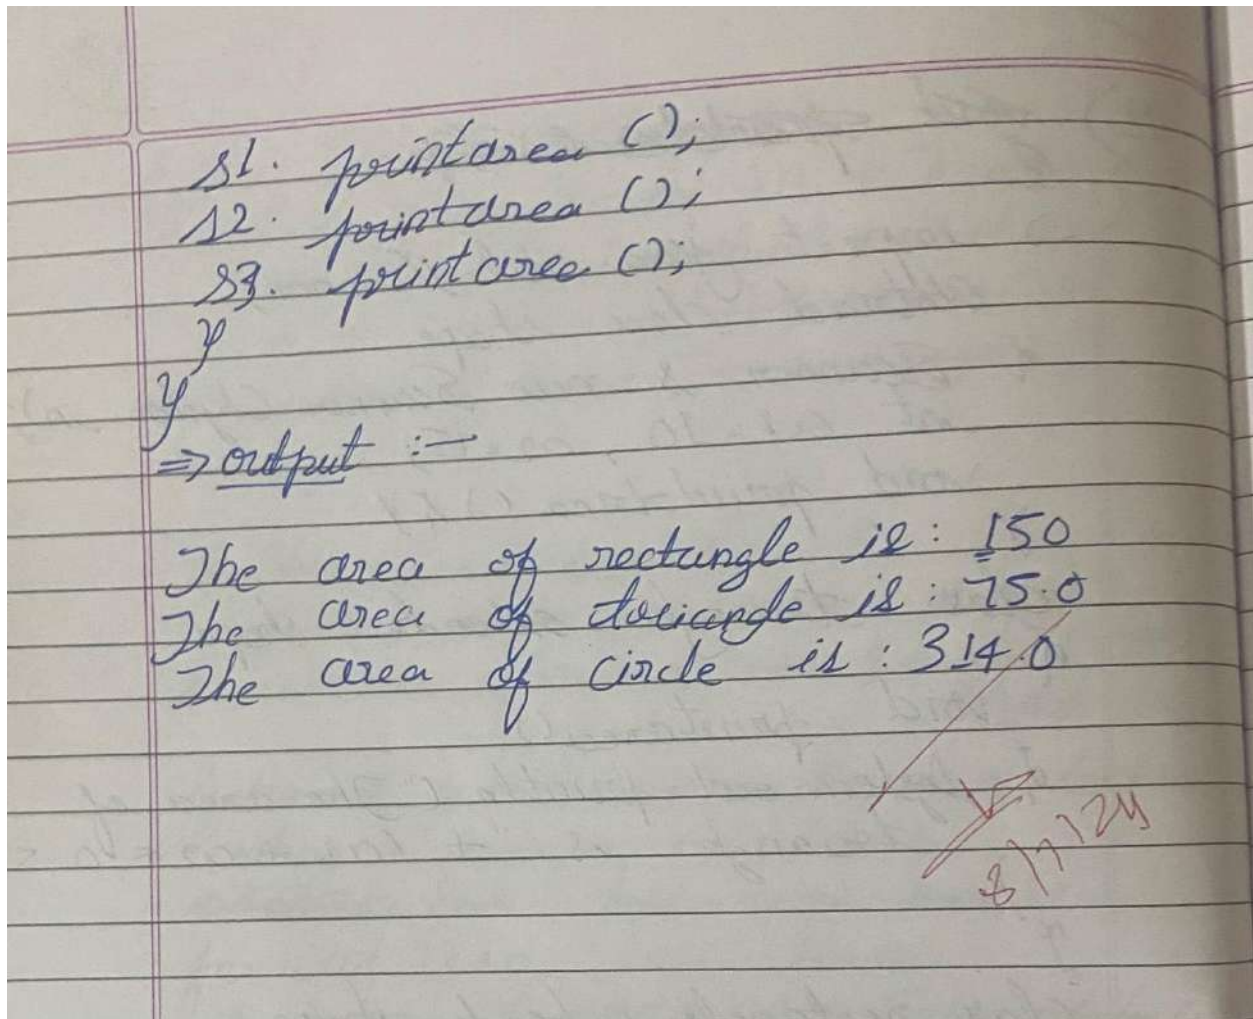 s1. printarea ();
s2. printarea ();
s3. printarea ();
}
}
=> output :-
The area of rectangle is: 150
The area of triangle is: 75.0
The area of circle is: 314.0
8/7/24